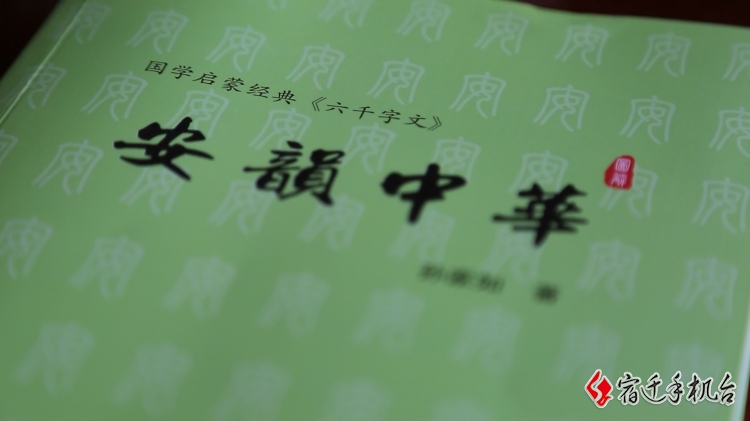 国学启蒙经典《六千字文》
安韻中華
圖解
著
宿迁手机台